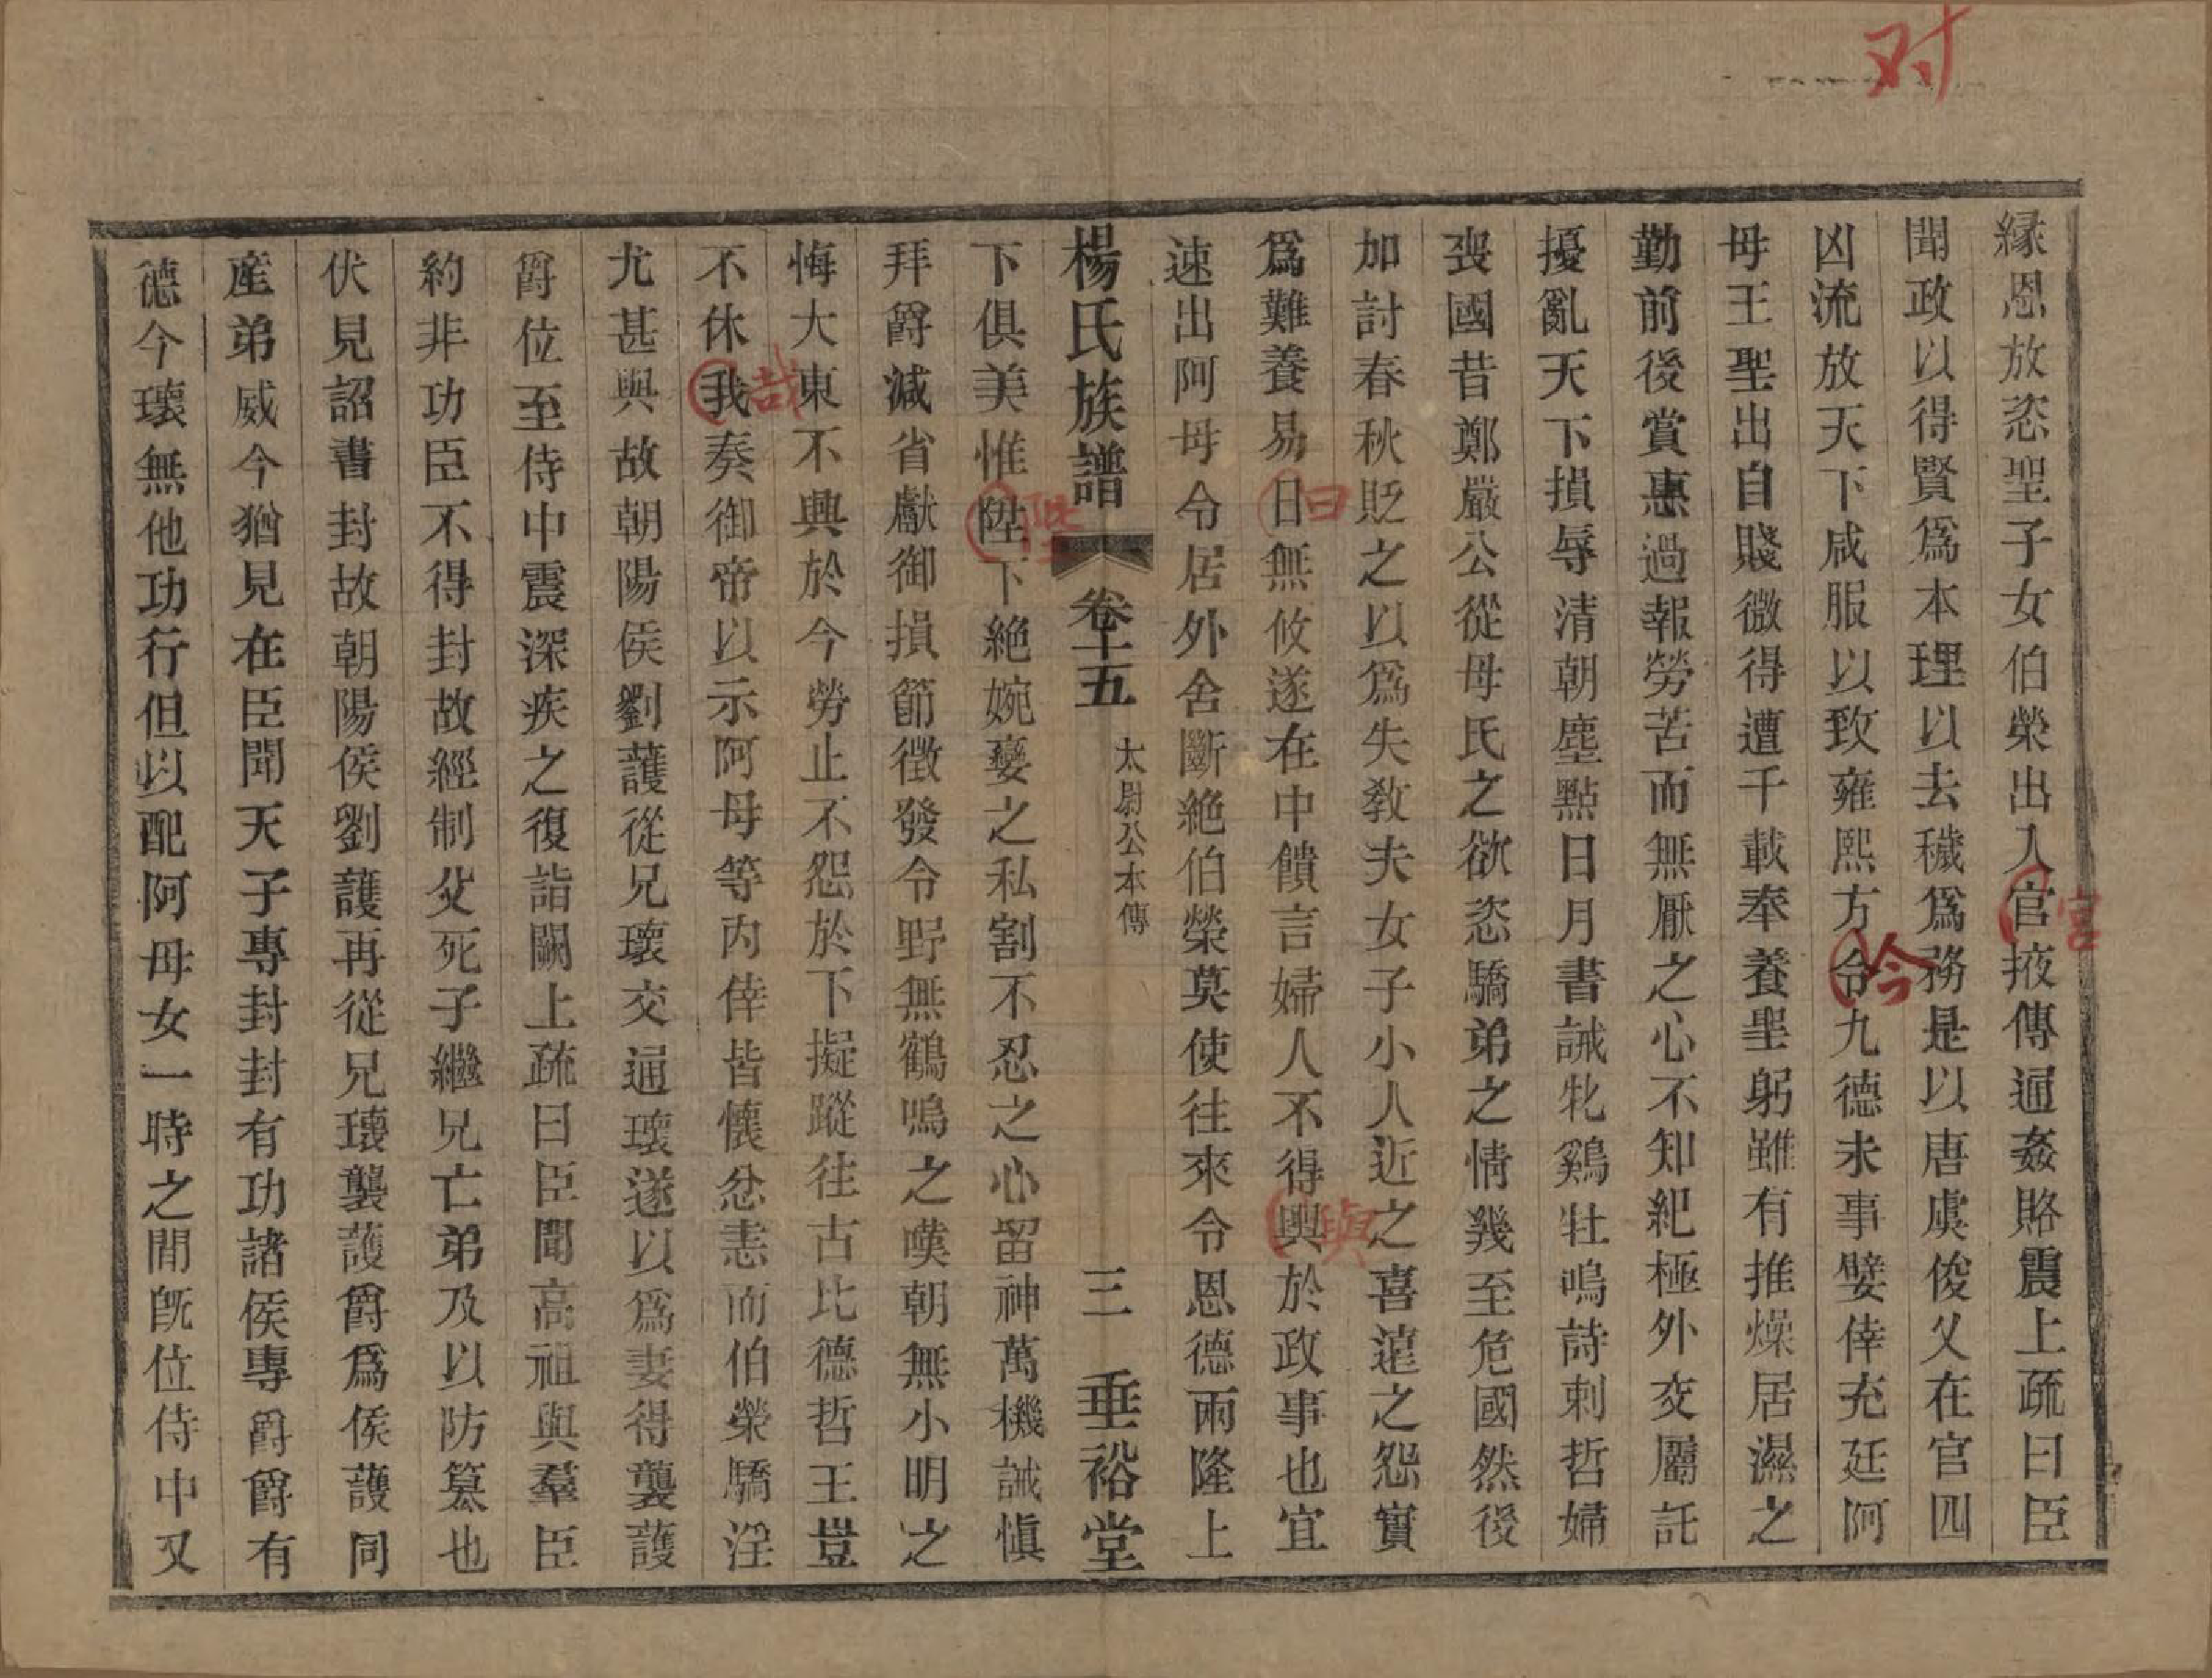 对
緣恩放恣聖子女伯榮出入官掖傳通姦賂震上疏曰臣
宮
聞政以得賢爲本理以去穢爲務是以唐虞俊乂在官四
凶流放天下咸服以致雍熙方令九德未事嬖倖充廷阿
今
母王聖出自賤微得遭千載奉養聖躬雖有推燥居濕之
勤前後賞惠過報勞苦而無厭之心不知紀極外交屬託
擾亂天下損辱清朝塵點日月書誡牝鷄牡鳴詩刺哲婦
喪國昔鄭嚴公從母氏之欲恣驕弟之情幾至危國然後
加討春秋貶之以爲失教夫女子小人近之喜遠之怨實
爲難養易日無攸遂在中饋言婦人不得興於政事也宜
曰
與
速出阿母令居外舍斷絶伯榮莫使往來令恩德兩隆上
楊氏族譜 卷十五 太尉公本傳 三 垂裕堂
下俱美惟陞下絶婉孌之私割不忍之心留神萬機誡愼
陛
拜爵減省獻御損節徵發令野無鶴鳴之嘆朝無小明之
悔大東不興於今勞止不怨於下擬蹤往古比德哲王豈
不休我奏御帝以示阿母等内倖皆懷忿恚而伯榮驕淫
哉
尤甚與故朝陽侯劉護從兄瓌交通瓌遂以爲妻得襲護
爵位至侍中震深疾之復詣闕上疏曰臣聞高祖與羣臣
約非功臣不得封故經制父死子繼兄亡弟及以防簒也
伏見詔書封故朝陽侯劉護再從兄瓌襲護爵爲侯護同
産弟威今猶見在臣聞天子專封封有功諸侯專爵爵有
德今瓌無他功行但以配阿母女一時之間旣位侍中又